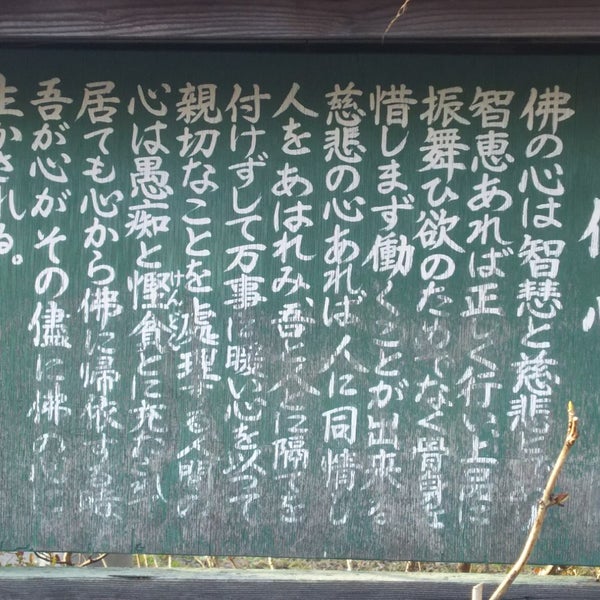 佛心
佛の心は智慧と慈悲と
智恵あれば正しく行い上品に
振舞ひ欲のためでなく骨身を
惜しまず働くことが出来る
慈悲の心あれば人に同情し
人をあはれみ、吾と人とに隔てを
付けずして万事に暖い心を以って
親切なことを處理する人間の
心は愚痴と慳貪とに充たされ
けんどん
居ても心から佛に帰依する時
吾が心がその儘に佛の心に
生かされる。